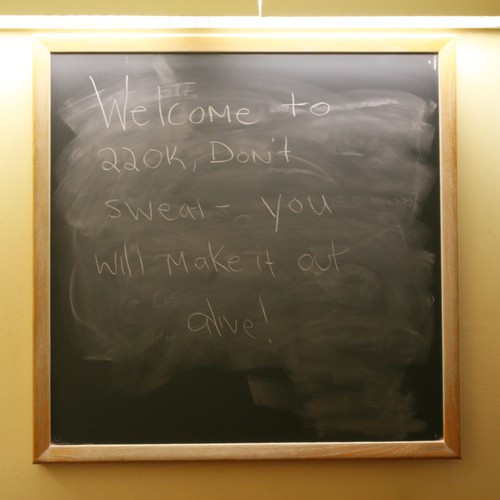 Welcome to
220K, Don't
sweat - you
will make it out
alive!